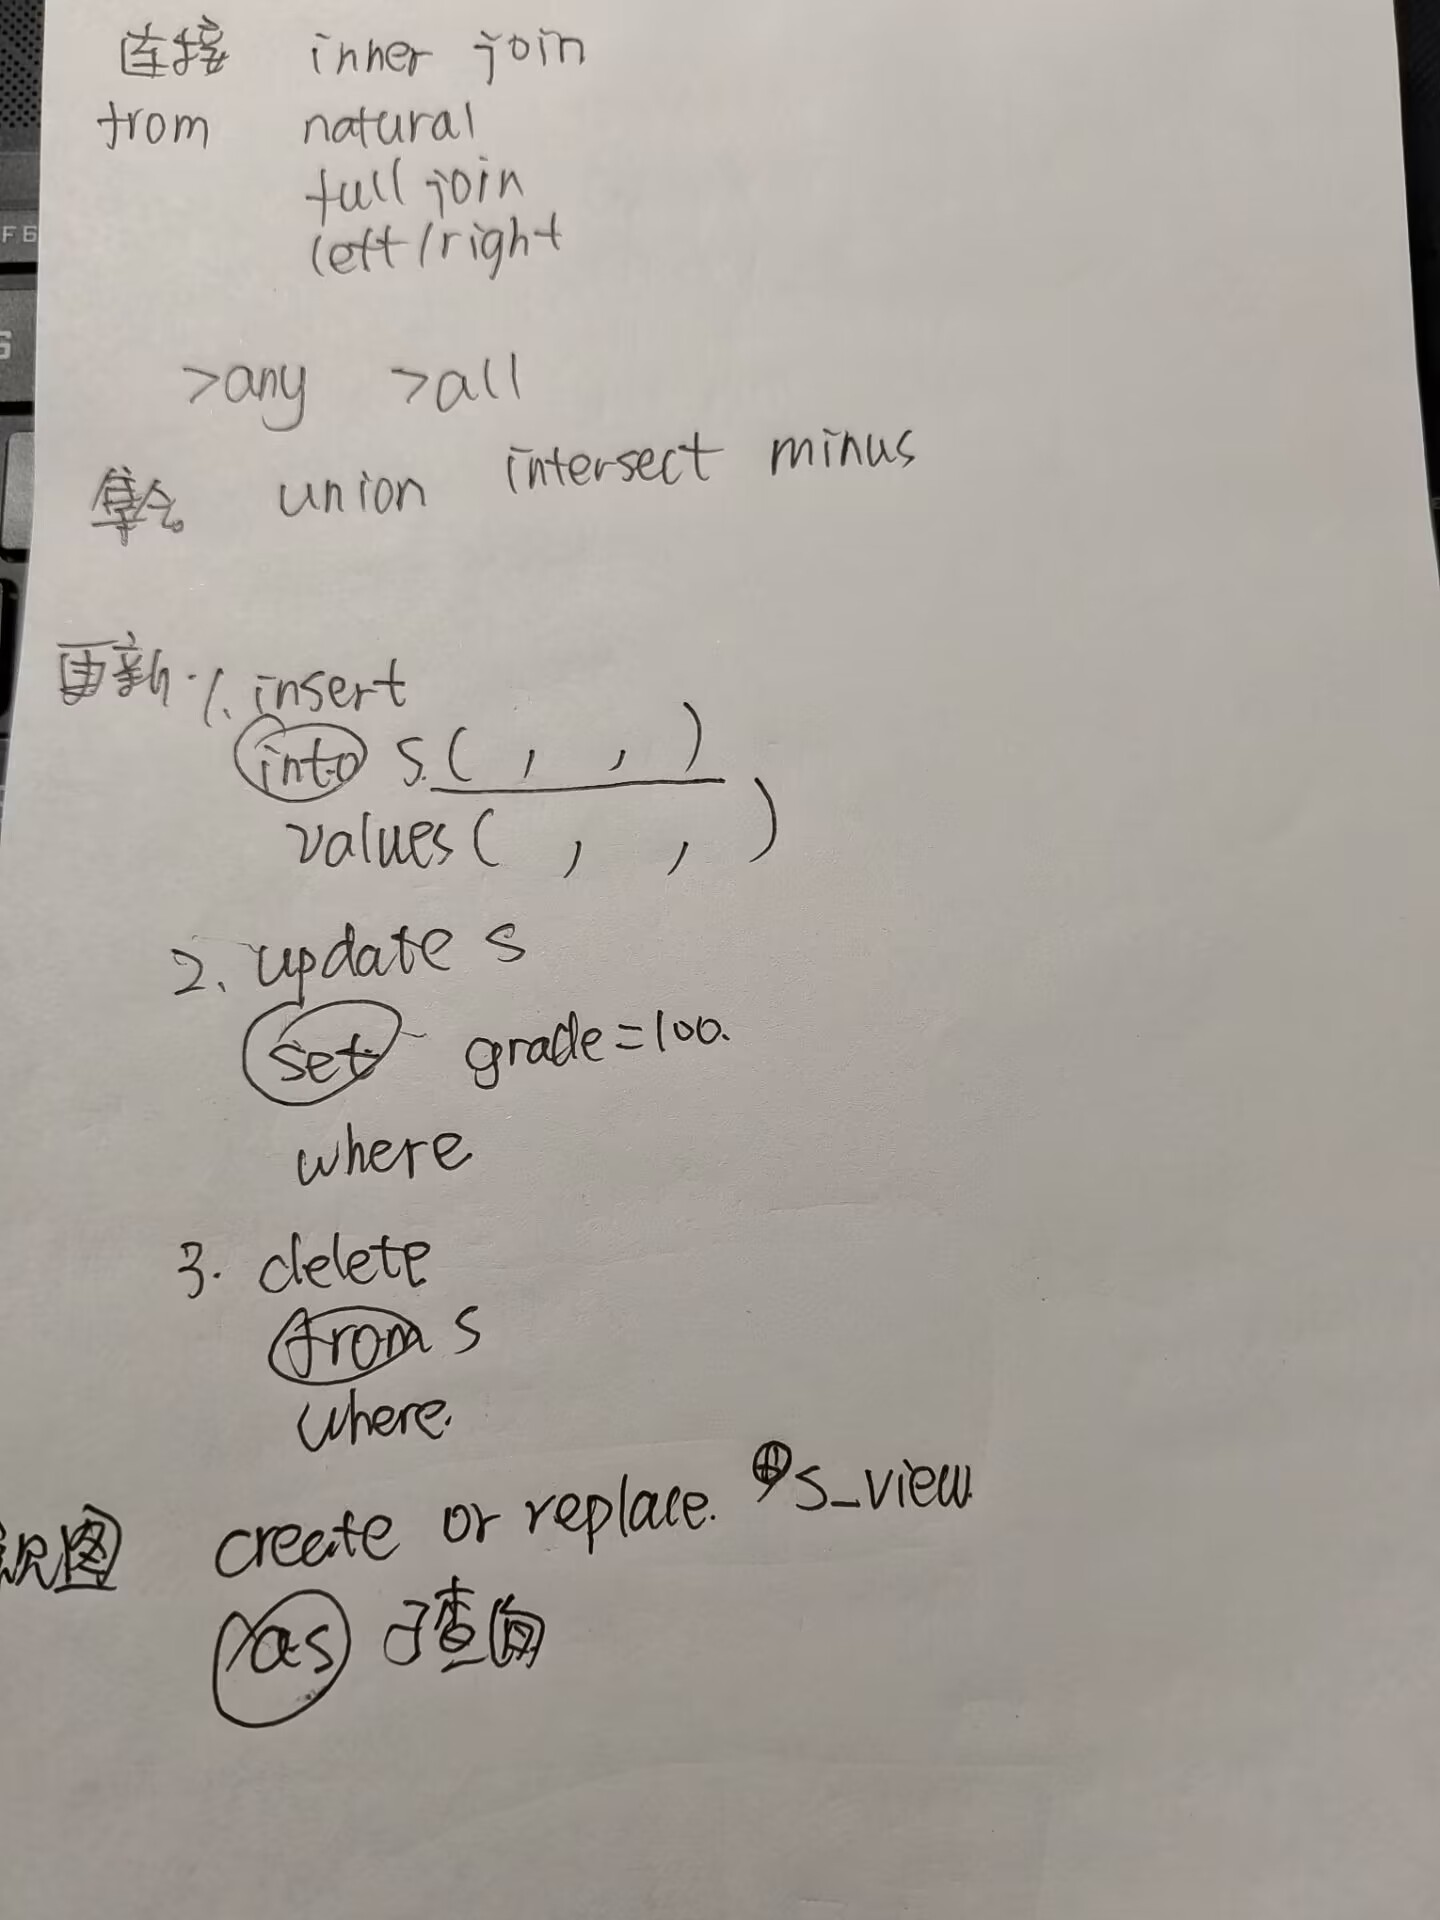 连接 inner join
from natural
full join
left/right
>any >all
集合 union intersect minus
更新. 1. insert
into s ( , , )
values ( , , )
2. update s
set grade=100.
where
3. delete
from s
where.
视图 create or replace. s_view
as 子查询
F6